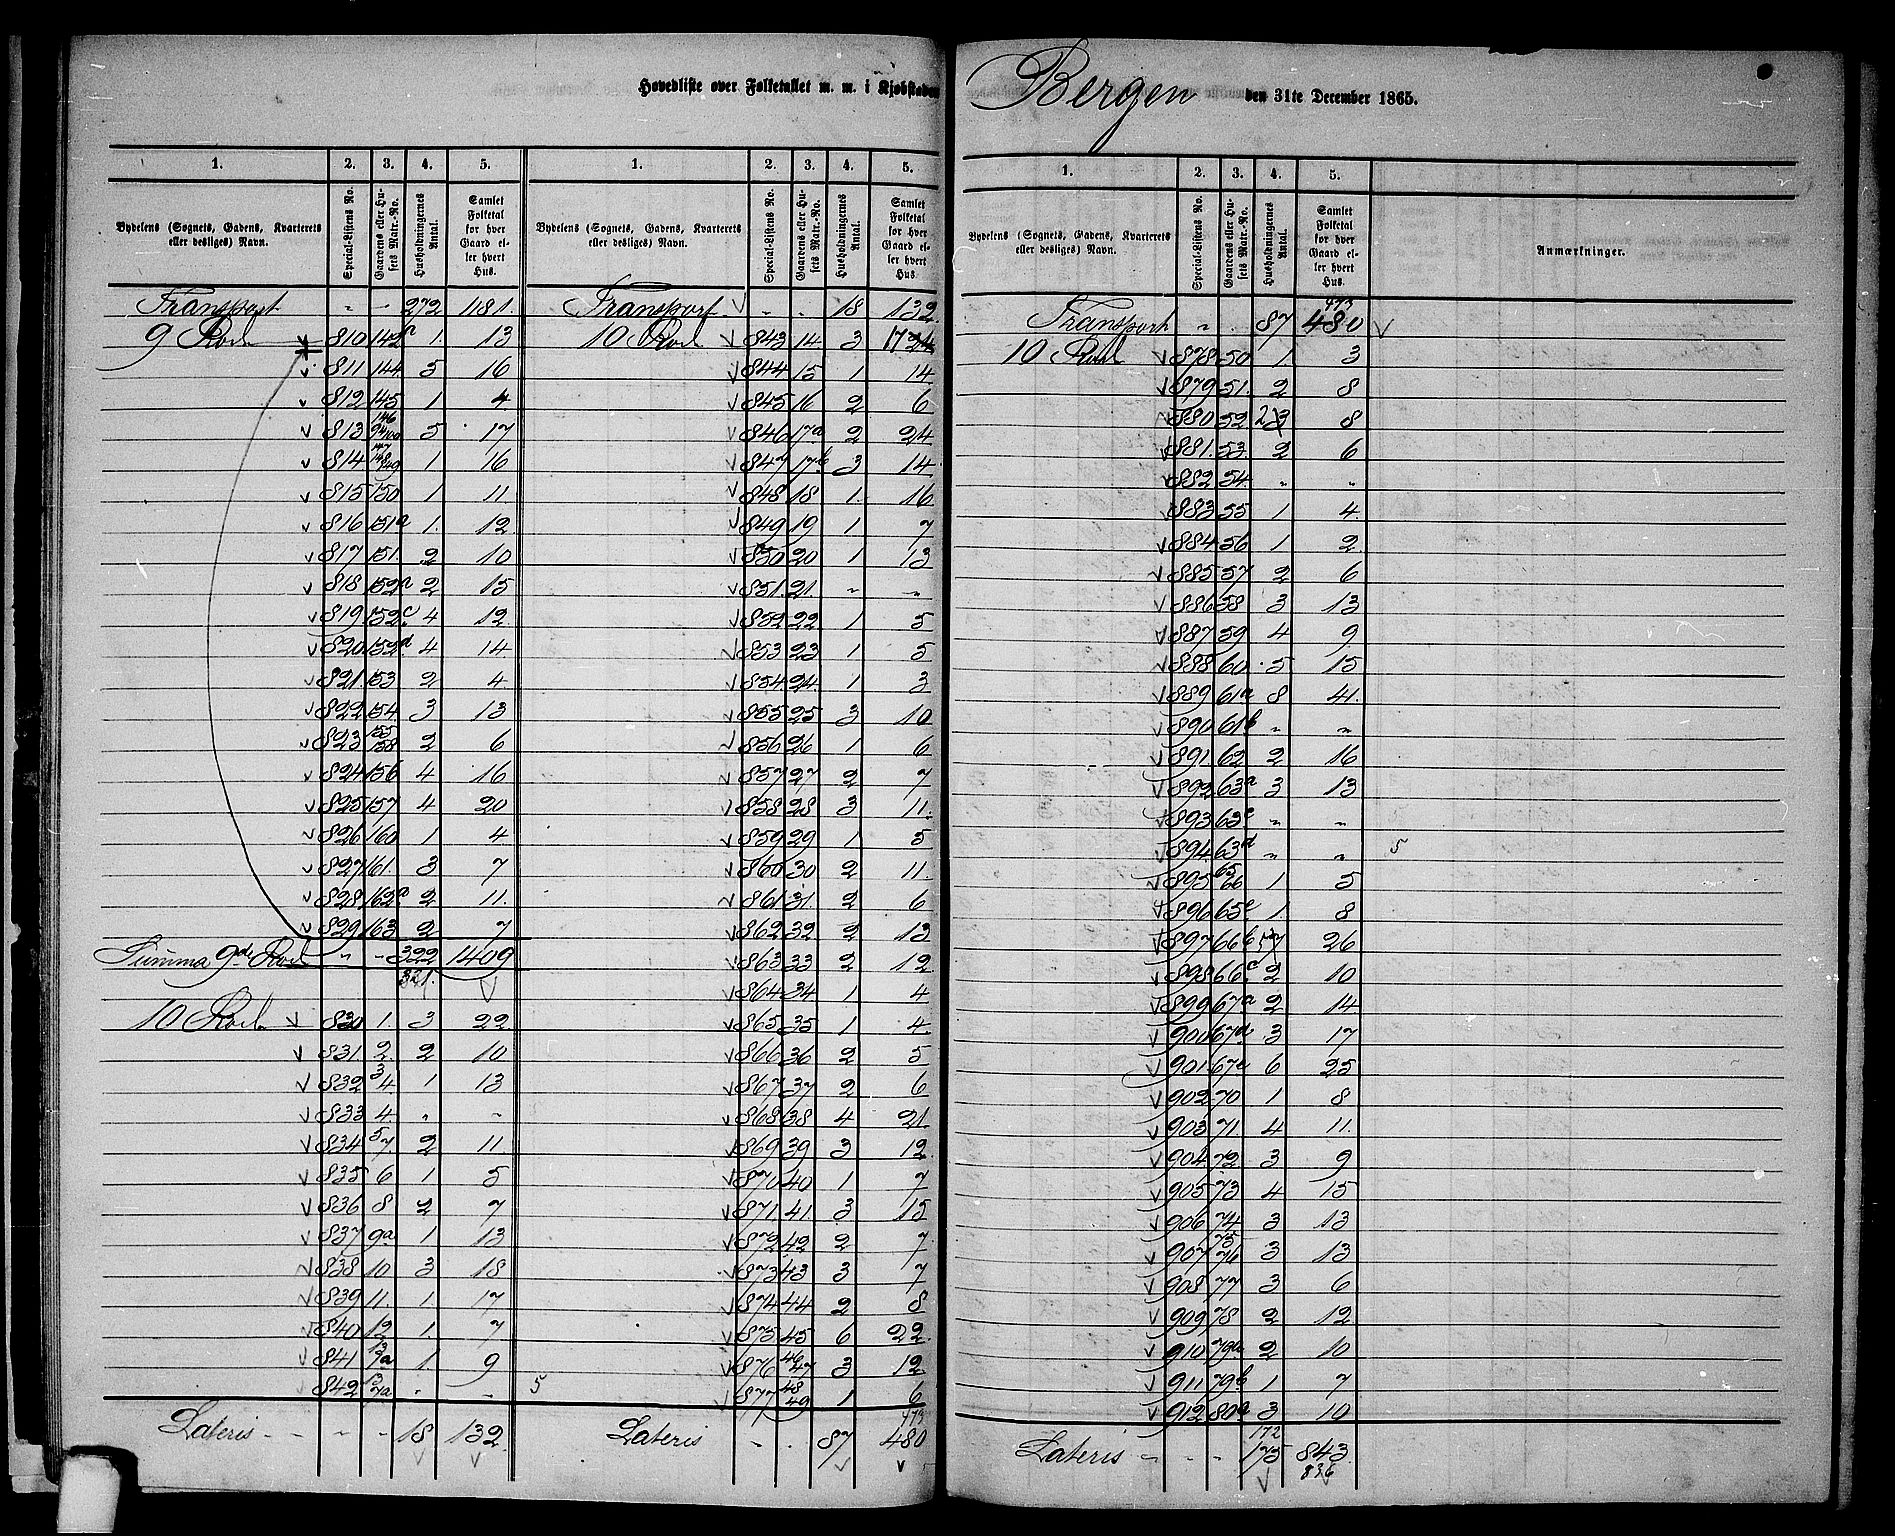 Hovedliste over Folketallet m. m. i Kjøbstaden Bergen den 31te December 1865.
1. 2. 3. 4. 5.
Bydelens (Sognets, Gadens, Kvarterets eller desliges) Navn. Special-Listens No. Gaardens eller Husets Matr.-No. Husholdningernes Antal. Samlet Folketal for hver Gaard eller hvert Hus.
Transport " " 272 1181.
9 Rode 810 142a 1. 13
811 144 5 16
812 145 1 4
813 146 5 17
814 1 16
815 150 1 11
816 151a 1. 12
817 151. 2 10
818 152a 2 15
819 152c 4 12
820 152d 4 14
821. 153 2 4
822 154 3 13
823 155 158 2 6
824 156 4 16
825 157 4 20
826 160 1 4
827 161. 3 7
828 162a 2 11.
829 163 2 7
Summa 9de Rode " " 322 1409
321.
10 Rode 830 1. 3 22
831 2. 2 10
832 3 4. 1 13
833 4. " "
834 5 7. 2 11.
835 6 1 5
836 8 2 7
837 9a 1 13
838 10 3 18
839 11. 1 17
840 12 1 7
841 13 7a 1 9
842 13 7a " "
Lateris " " 18 132
1. 2. 3. 4. 5.
Bydelens (Sognets, Gadens, Kvarterets eller desliges) Navn. Special-Listens No. Gaardens eller Husets Matr.-No. Husholdningernes Antal. Samlet Folketal for hver Gaard eller hvert Hus.
Transport " " 18 132
10 Rode 843 14. 3 17 24
844 15 1 14
845 16 2 6
846 17a 2 24
847 17b 3 14
848 18 1. 16
849 19 1 7
850 20 1 13
851. 21. " "
852 22 1 5
853 23 1 5
854 24. 1 3
855 25 3 10
856 26 1 6
857 27 2 7
858 28 3 11.
859 29 1 5
860 30 2 11.
861 31. 2 6
862 32 2 13
863 33 2 12
864 34 1 4
865 35 1 4
866 36 2 5
867 37 2 6
868 38 4 21
869 39 3 12
870 40 1 7
871 41. 3 15
872 42 2 7
873 43 3 7
874 44 2 8
875. 45 6 22
876 46 47 3 12
5 877 48 49 1 6
473
Lateris " " 87 480
1. 2. 3. 4. 5.
Bydelens (Sognets, Gadens, Kvarterets eller desliges) Navn. Special-Listens No. Gaardens eller Husets Matr.-No. Husholdningernes Antal. Samlet Folketal for hver Gaard eller hvert Hus. Anmærkninger.
473
Transport " " 87 480
10 Rode 878 50 1. 3
879 51. 2 8
880 52 2 3 8
881. 53. 2 6
882 54 " "
883 55 1 4
884 56 1 2
885 57 2 6
886 58 3 13
887 59 4 9
888 60 5 15
889 61a 8 41.
890 61b " "
891 62 2 16
892 63a 3 13
893 63c " "
894 63d " " 5
895 65 66 1 5
896 65c 1. 8
897 66b 26
898 66c 2 10
899 67a 2 14
900 67d 3 17
901 67e 6 25
902 70 1 8
903 71 4 11.
904 72 3 9
905 73 4 15
906 74 3 13
907 75 76 3 13
908 77 3 6
909 78 2 12
910 79a 2 10
911 79b 1 7
912 80a 3 10
172
Lateris " " 175 843.
836